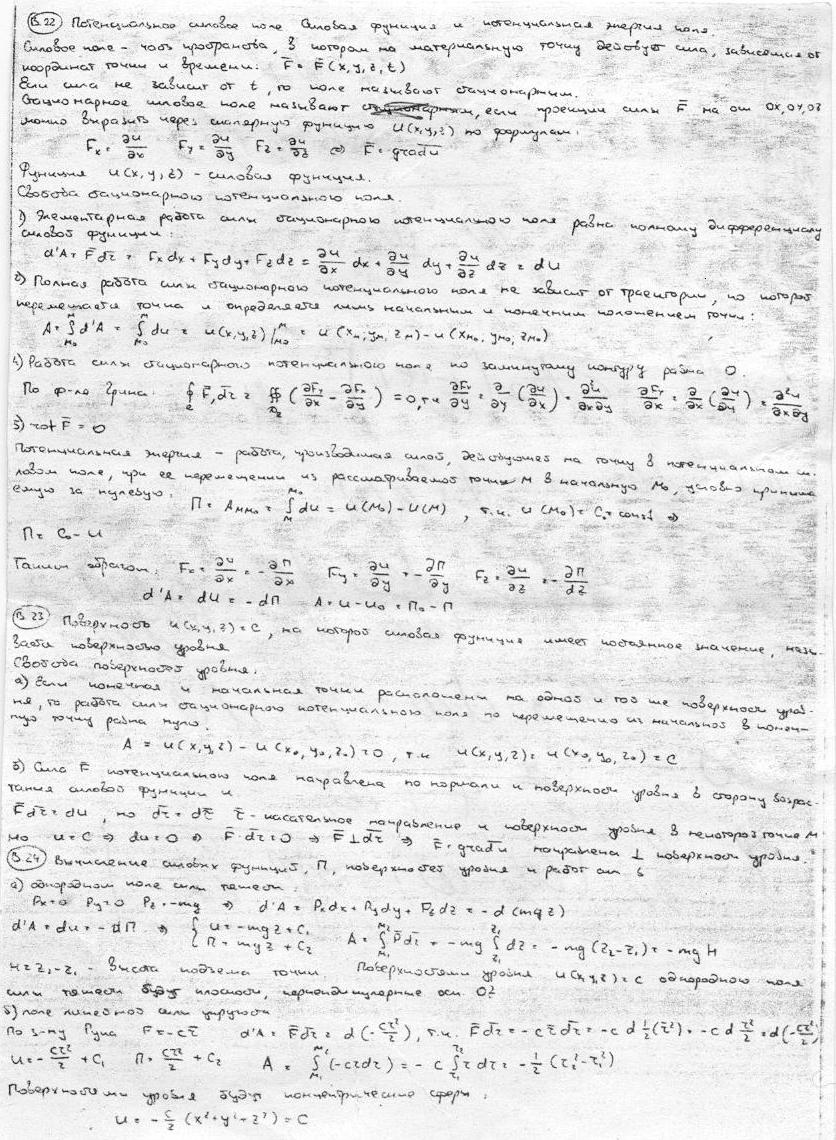 В.22 Потенциальное силовое поле Силовая функция и потенциальная энергия поля.
Силовое поле - часть пространства, в котором на материальную точку действует сила, зависящая от
координат точки и времени: F̄ = F̄(x,y,z,t)
Если сила не зависит от t, то поле называют стационарным.
Стационарное силовое поле называют, если проекции силы F̄ на оси OX, OY, OZ
можно выразить через скалярную функцию U(x,y,z) по формулам:
Fx = ∂u/∂x Fy = ∂u/∂y Fz = ∂u/∂z ⇔ F̄ = grad u
Функция u(x,y,z) - силовая функция.
Свойства стационарного потенциального поля.
1) Элементарная работа силы стационарного потенциального поля равна полному дифференциалу
силовой функции:
d'A = F̄dr̄ = Fxdx + Fydy + Fzdz = ∂u/∂x dx + ∂u/∂y dy + ∂u/∂z dz = dU
2) Полная работа силы стационарного потенциального поля не зависит от траектории, по которой
перемещается точка и определяется лишь начальным и конечным положением точки:
A = ∫d'A = ∫du = u(x,y,z)| = u(xм, yм, zм) - u(xм₀, yм₀, zм₀)
4) Работа силы стационарного потенциального поля по замкнутому контуру равна 0.
По ф-ле Грина: ∮ F̄,dr̄ = ∯ (∂Fy/∂x - ∂Fx/∂y) = 0, т.к ∂Fx/∂y = ∂/∂y (∂u/∂x) = ∂²u/∂x∂y ∂Fy/∂x = ∂/∂x (∂u/∂y) = ∂²u/∂x∂y
3) rot F̄ = 0
Потенциальная энергия - работа, производимая силой, действующей на точку в потенциальном си-
ловом поле, при ее перемещении из рассматриваемой точки M в начальную M₀, условно принима
емую за нулевую:
П = Aмм₀ = ∫du = U(M₀) - U(M), т.к. U(M₀) = C₀ = const ⇒
П = C₀ - U
Таким образом: Fx = ∂u/∂x = -∂П/∂x Fy = ∂u/∂y = -∂П/∂y Fz = ∂u/∂z = -∂П/dz
d'A = dU = -dП A = U - U₀ = П₀ - П
В.23 Поверхность u(x,y,z) = C, на которой силовая функция имеет постоянное значение, назы-
вается поверхностью уровня
Свойства поверхностей уровня:
а) Если конечная и начальная точки расположены на одной и той же поверхности уров-
ня, то работа силы стационарного потенциального поля по перемещению из начальной в конеч-
ную точку равна нулю.
A = u(x,y,z) - u(x₀,y₀,z₀) = 0, т.к u(x,y,z) = u(x₀,y₀,z₀) = C
б) Сила F̄ потенциального поля направлена по нормали к поверхности уровня в сторону возрас-
тания силовой функции u.
F̄dr̄ = du, но dr̄ = dτ̄ τ̄ - касательное направление к поверхности уровня в некоторой точке M
но u = C ⇒ du = 0 ⇒ F̄·dr̄ = 0 ⇒ F̄ ⊥ dr̄ ⇒ F̄ = grad u направлена ⊥ поверхности уровня.
В.24 Вычисление силовых функций, П, поверхностей уровня и работ сил в
а) однородном поле силы тяжести:
Px = 0 Py = 0 Pz = -mg ⇒ d'A = Pxdx + Pydy + Pzdz = -d(mgz)
d'A = du = -dП ⇒ { U = -mgz + C₁ П = mgz + C₂ A = ∫P̄dr̄ = -mg ∫dz = -mg(z₂ - z₁) = -mgH
H = z₂ - z₁ - высота подъема точки. Поверхностями уровня u(x,y,z) = c однородного поля
силы тяжести будут плоскости, перпендикулярные оси OZ
б) поле линейной силы упругости
По з-ну Гука F̄ = -cr̄ d'A = F̄dr̄ = d(-cr²/2), т.к. F̄dr̄ = -cr̄dr̄ = -cd½(r̄²) = -cd r²/2 = d(-cr²/2)
U = -cr²/2 + C₁ П = cr²/2 + C₂ A = ∫(-crdr) = -c∫rdr = -½(r₂² - r₁²)
Поверхностями уровня будут концентрические сферы:
U = -c/2 (x² + y² + z²) = C